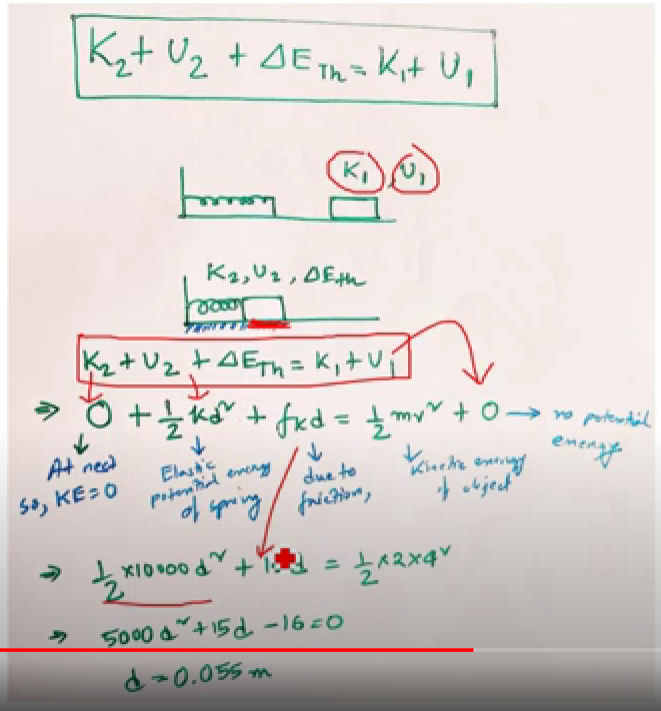 K₂ + U₂ + ΔE_Th = K₁ + U₁
K₁, U₁
K₂, U₂, ΔE_th
K₂ + U₂ + ΔE_Th = K₁ + U₁
⇒ 0 + ½ kd² + f_k d = ½ mv² + 0 → no potential energy
At rest
so, KE = 0
Elastic
potential energy
of spring
due to
friction,
Kinetic energy
of object
⇒ ½ × 10000 d² + d = ½ × 2 × 4²
⇒ 5000 d² + 15d - 16 = 0
d = 0.055 m